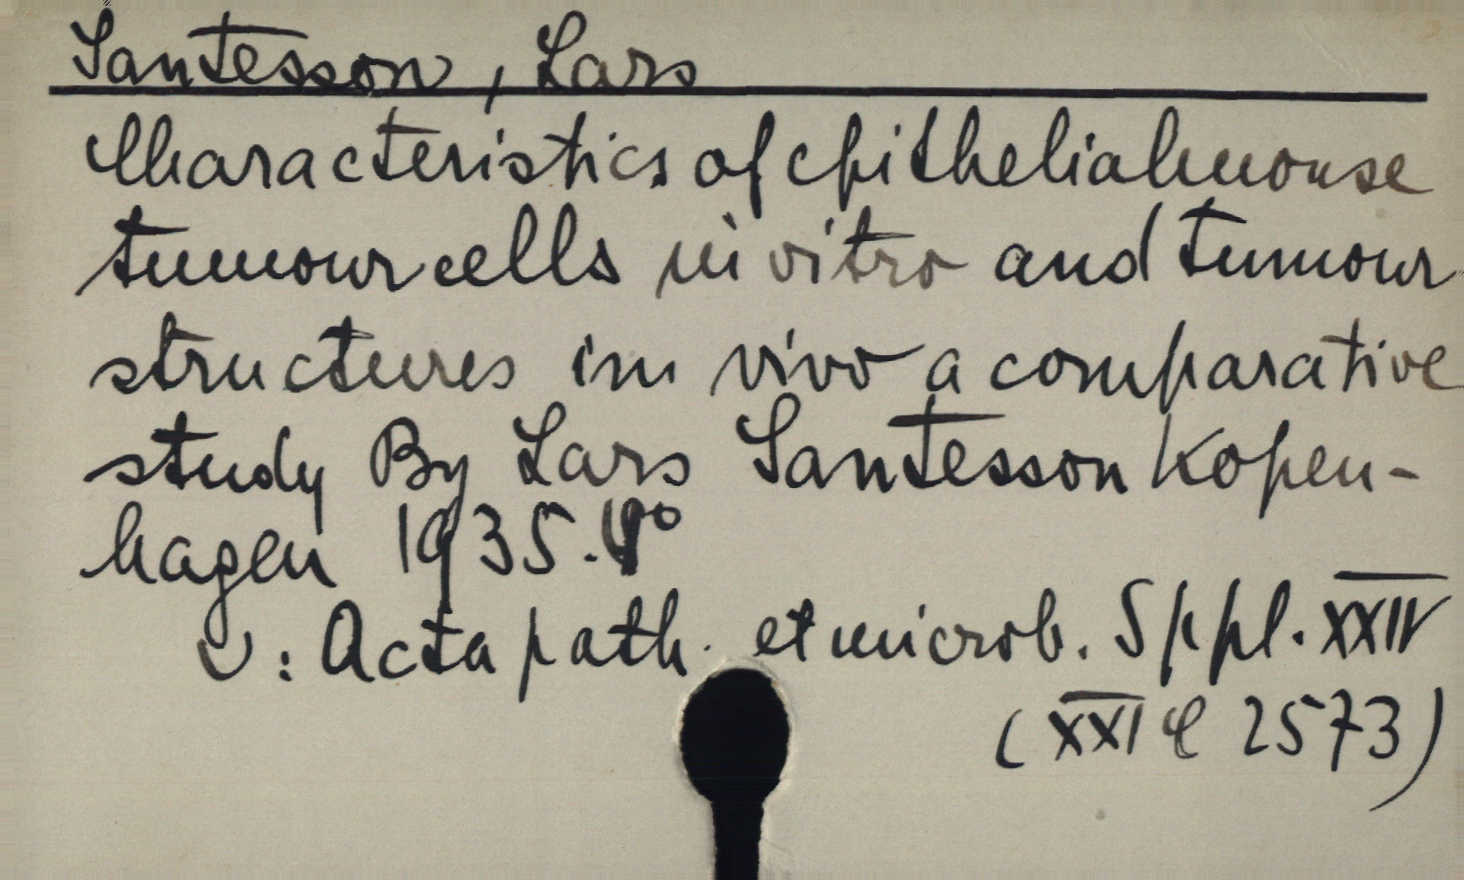 Santesson, Lars
Characteristics of epithelial mouse
tumour cells in vitro and tumour
structures im vivo a comparative
study By Lars Santesson Kopen-
hagen 1935. 4°
: Acta path. et microb. Sppl. XXIV
(XXI 2573)